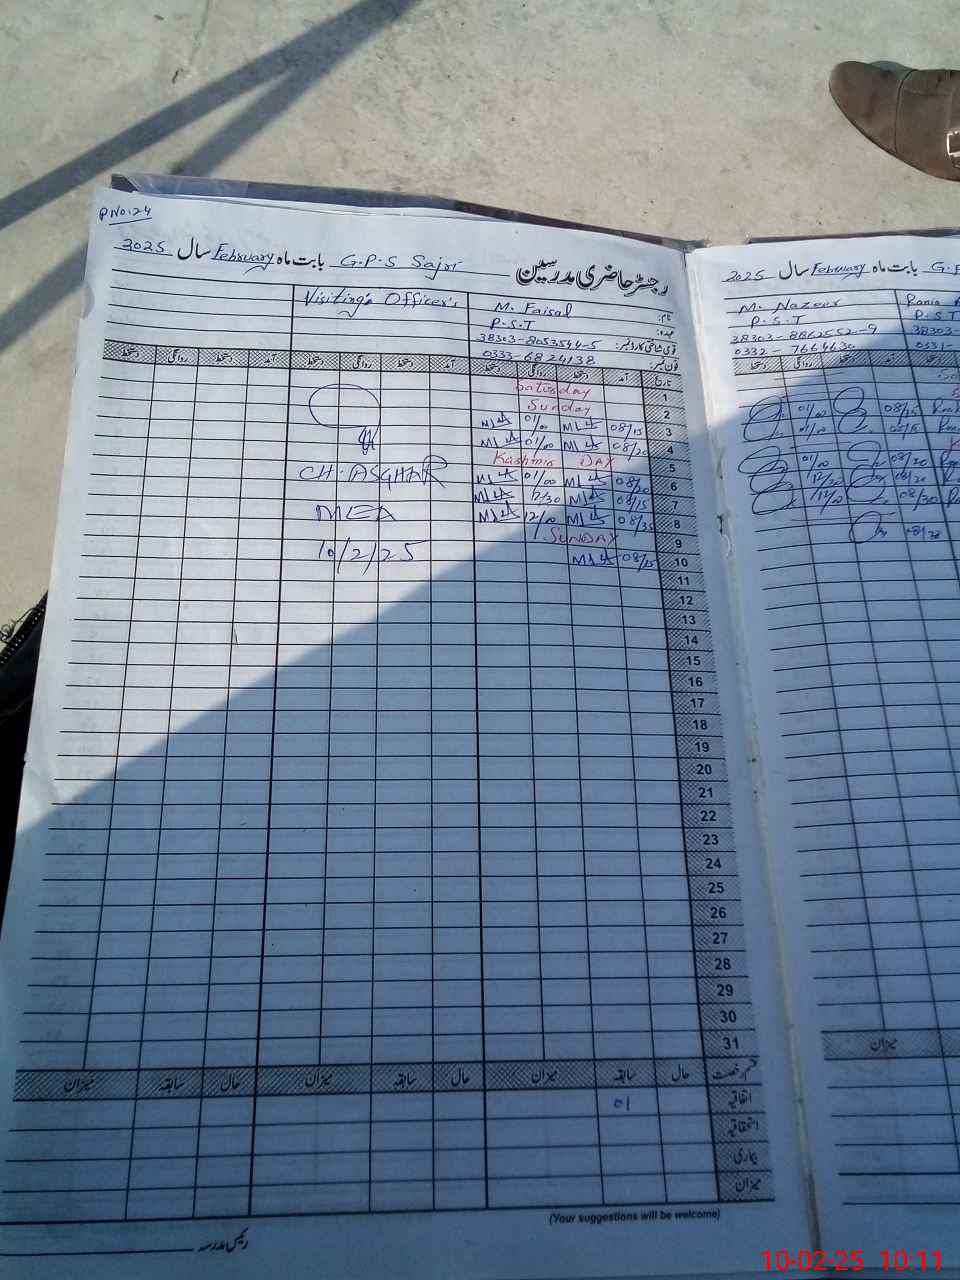 P No: 24
رجسٹر حاضری مدرسین G.P.S Sajri بابت ماہ February سال 2025
نام: M. Faisal Visiting's Officer's
عہدہ: P.S.T
قومی شناختی کارڈ نمبر: 38303-8053544-5
فون نمبر: 0333-6824138
تاریخ آمد دستخط روانگی دستخط آمد دستخط روانگی دستخط آمد دستخط روانگی دستخط
1 Saturday
2 Sunday
3 08/15 01/00
4 08/20 01/00
5 Kashmir DAY
6 08/20 01/00 CH. ASGHAR
7 08/15 12/30
8 08/35 12/00 MEA
9 SUNDAY
10 08/15 10/2/25
11
12
13
14
15
16
17
18
19
20
21
22
23
24
25
26
27
28
29
30
31
قسم رخصت حال سابقہ میزان حال سابقہ میزان حال سابقہ میزان
اتفاقیہ 01
استحقاقیہ
بیماری
میزان
(Your suggestions will be welcome)
رئیس مدرسہ
بابت ماہ February سال 2025
M. Nazeer
P.S.T
38303-8862552-9
0332-7664630
Rania
P.S.T
38303-
0331-
آمد دستخط روانگی دستخط
01/00
08/20 01/00
08/20 12/30
08/30 12/00
میزان
10-02-25 10:11